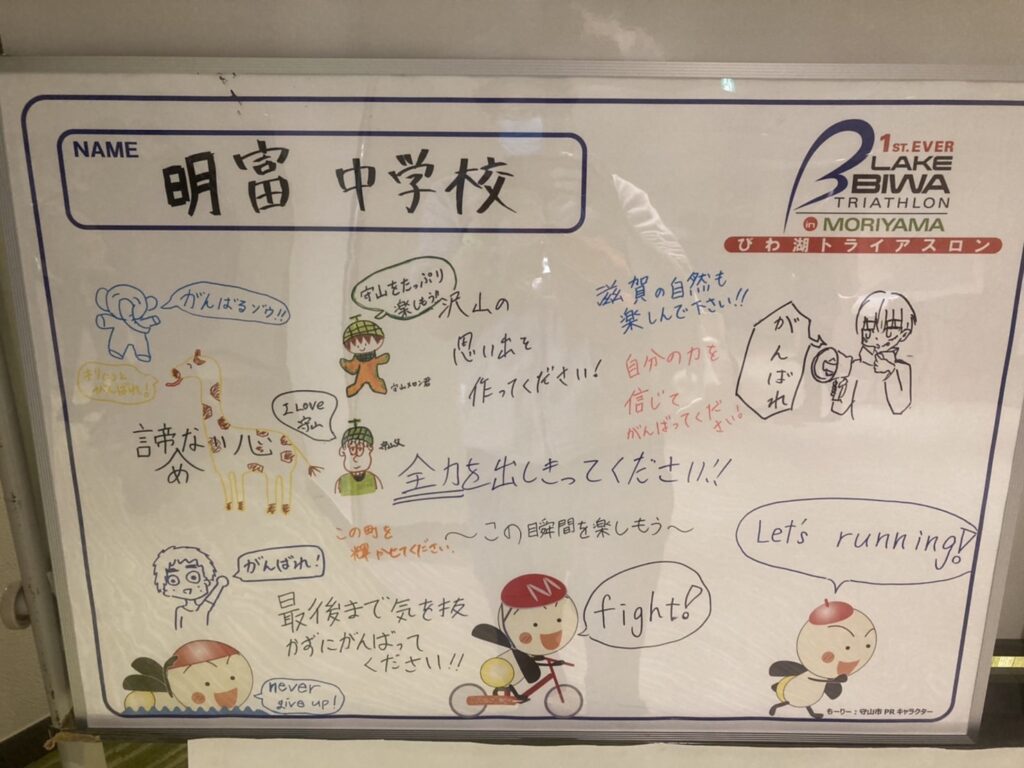 NAME
明富 中学校
1ST. EVER
LAKE
BIWA
TRIATHLON
in MORIYAMA
びわ湖トライアスロン
がんばるゾウ!!
守山をたっぷり
楽しもう!
沢山の
思い出を
作ってください!
滋賀の自然も
楽しんで下さい!!
がんばれ
がんばれ!
守山メロン君
自分の力を
信じて
がんばってくだ
さい!
I Love
守山
守山父
諦めない心
全力を出しきってください!!
この町を
輝かせてください.
〜この瞬間を楽しもう〜
Let's running!
がんばれ!
最後まで気を抜
かずにがんばって
ください!!
fight!
never
give up!
M
もーりー:守山市PRキャラクター